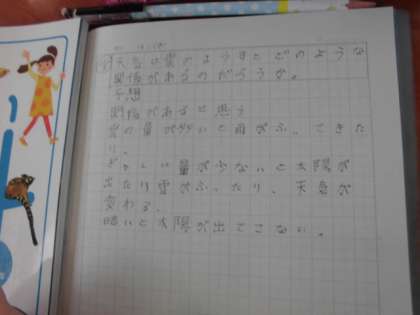 天気は雲のようすとどのような
関係があるのだろうか。
予想
関係があると思う
雲の量が多いと雨がふってきた
り、
ぎゃくに量が少ないと太陽が
出たり雲がふったり、天気が
変わる。
暗いと太陽が出てこない。